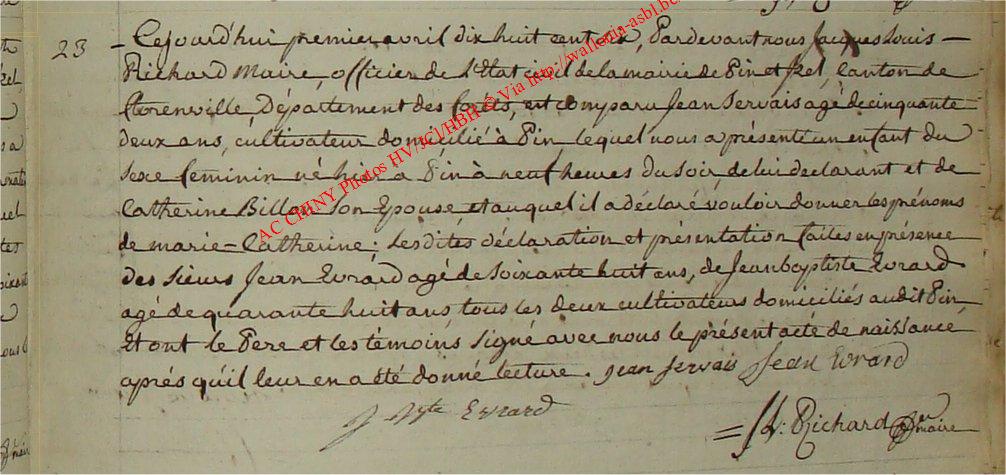 23
Cejourd'hui premier avril dix huit cent , Pardevant nous Jacques Louis
Richard Maire, officier de l'Etat civil de la mairie de Pin et Izel, Canton de
florenville, Département des forêts, est comparu Jean Servais agé de cinquante
deux ans, cultivateur domicilié à Pin, lequel nous a présenté un enfant du
sexe feminin né hier a Pin à neuf heures du soir, de lui declarant et de
Catherine son Epouse, et auquel il a déclaré vouloir donner les prénoms
de marie-Catherine; Lesdites déclaration et présentation faites en présence
des sieurs Jean Evrard agé de soixante huit ans, de Jean baptiste Evrard
agé de quarante huit ans, tous les deux cultivateurs domiciliés audit Pin,
Et ont le Pere et les témoins signé avec nous le présent acte de naissance,
après qu'il leur en a été donné lecture. Jean Servais Jean Evrard
J Bpte Evrard
Richard
maire
AC CHINY Photos HV/JCl/HBH © Via http://wallonia-asbl.be